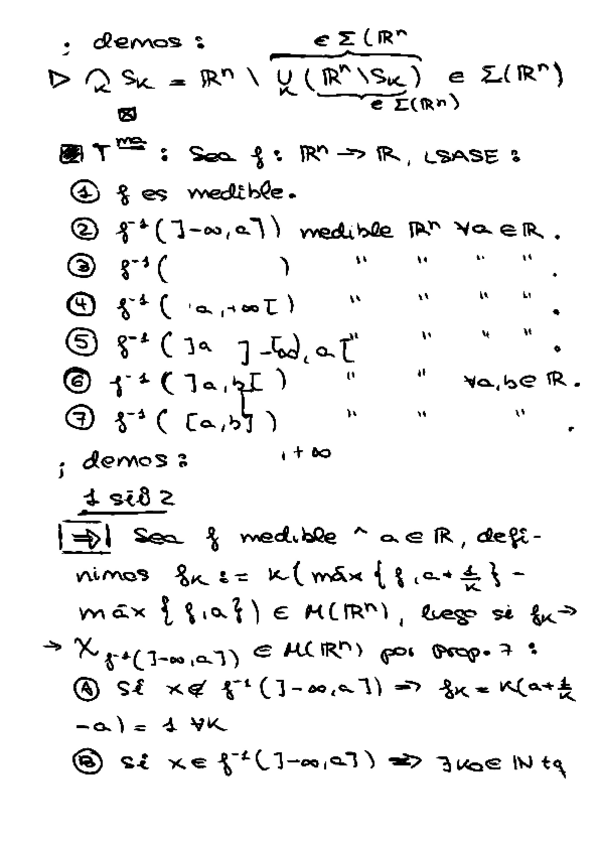 ; demos :
∈ Σ(ℝⁿ
▷ ∩_K S_K = ℝⁿ \ ∪_K (ℝⁿ\S_K) ∈ Σ(ℝⁿ)
∈ Σ(ℝⁿ)
T^ma : Sea f : ℝⁿ → ℝ, LSASE :
① f es medible.
② f⁻¹(]-∞,a]) medible ℝⁿ ∀a ∈ ℝ.
③ f⁻¹( ) " " " " .
④ f⁻¹( a,+∞[) " " " " .
⑤ f⁻¹(]a ]-∞, a[ " " " " .
⑥ f⁻¹(]a,b[) " " ∀a,b ∈ ℝ.
⑦ f⁻¹([a,b]) " " " .
, +∞
; demos :
1 sii 2
|⇒| Sea f medible ^ a ∈ ℝ, defi-
nimos f_K := K(máx{f,a+1/K} -
máx{f,a}) ∈ M(ℝⁿ), luego si f_K →
→ χ_f⁻¹(]-∞,a]) ∈ M(ℝⁿ) por prop. 7 :
Ⓐ Si x ∉ f⁻¹(]-∞,a]) ⇒ f_K = K(a+1/K
-a) = 1 ∀K
Ⓑ Si x ∈ f⁻¹(]-∞,a]) ⇒ ∃K₀ ∈ ℕ tq